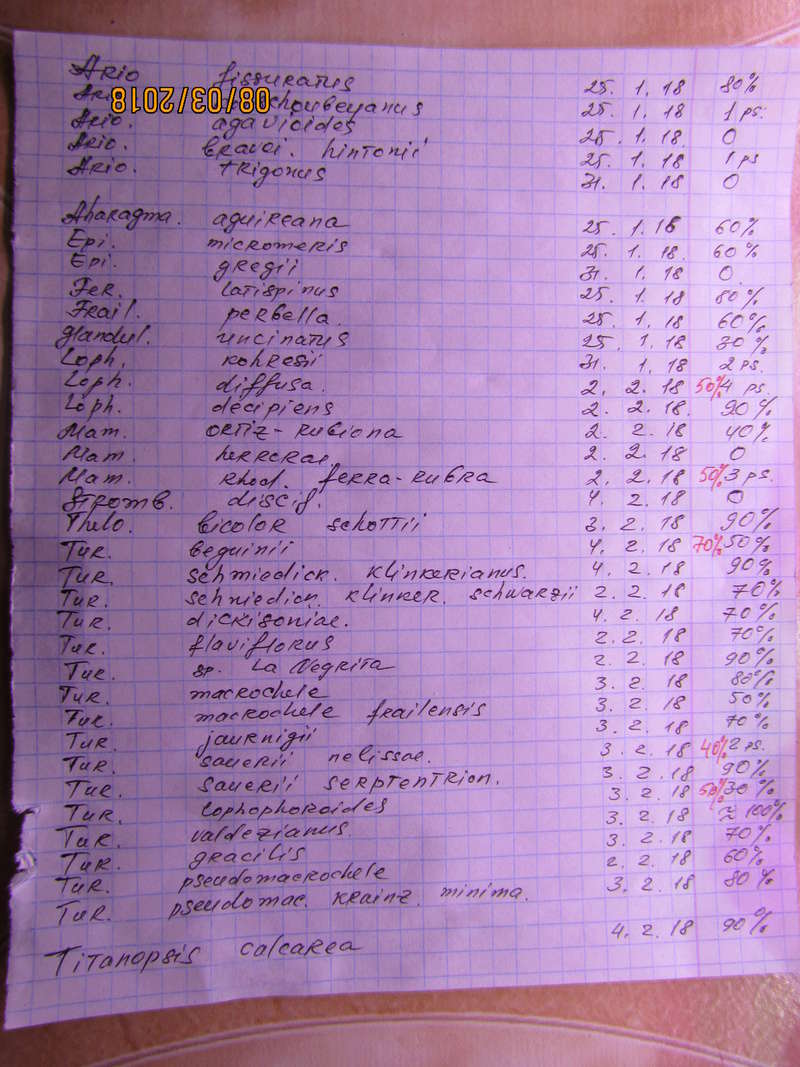 Ario fissuratus 25. 1. 18 80%
08/03/2018
choubeyanus 25. 1. 18 1 ps.
Ario. agavioides 25. 1. 18. 0
Ario. bravoi. hintonii 25. 1. 18 1 ps
Ario. trigonus 31. 1. 18 0
Aharagma. aguireana 25. 1. 18 60%
Epi. micromeris 25. 1. 18. 60%
Epi. gregii 31. 1. 18 0
Fer. latispinus 25. 1. 18 80%
Frail. perbella. 25. 1. 18 60%
Glandul. uncinatus 25. 1. 18
Loph. kohresii 31. 1. 18 2 ps.
Loph. diffusa. 2. 2. 18 50% 4 ps.
Loph. decipiens 2. 2. 18. 90%
Mam. ortiz-rubiona 2. 2. 18 40%
Mam. herrerae 2. 2. 18 0
Mam. rhod. ferra-rubra 2. 2. 18 50% 3 ps.
Stromb. discif. 4. 2. 18 0
Thelo. bicolor schottii 3. 2. 18 90%
Tur. beguinii 4. 2. 18 70% 50%
Tur. schmiedick. klinkerianus. 4. 2. 18 90%
Tur. schmiedick. klinker. schwarzii 2. 2. 18 70%
Tur. dickisoniae. 4. 2. 18 70%
Tur. flaviflorus 2. 2. 18 70%
Tur. sp. La Negrita 2. 2. 18 90%
Tur. macrochele 3. 2. 18 80%
Tur. macrochele frailensis 3. 2. 18 50%
Tur. jaurnigii 3. 2. 18 70%
Tur. sauerii nelissae. 3. 2. 18 40% 2 ps.
Tur. sauerii septentrion. 3. 2. 18 90%
Tur. lophophoroides 3. 2. 18 50% 30%
Tur. valdezianus. 3. 2. 18 ≈ 100%
Tur. gracilis 3. 2. 18 70%
Tur. pseudomacrochele 2. 2. 18 60%
Tur. pseudomac. krainz. minima. 3. 2. 18 80%
Titanopsis calcarea 4. 2. 18 90%